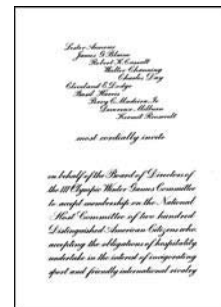 Lester Armour
James G. Blaine
Robert H. Cassatt
Walter Channing
Charles Day
Cleveland E. Dodge
Basil Harris
Percy C. Madeira, Jr.
Devereux Milburn
Kermit Roosevelt
most cordially invite
on behalf of the Board of Directors of
the III Olympic Winter Games Committee
to accept membership on the National
Host Committee of two hundred
Distinguished American Citizens who
accepting the obligations of hospitality
undertake in the interest of invigorating
sport and friendly international rivalry